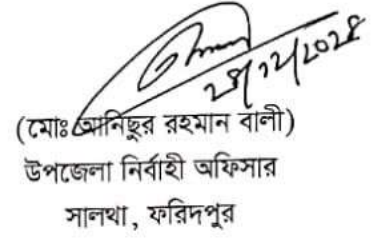 ২৪/১২/২০২৪
(মোঃ আনিছুর রহমান বালী)
উপজেলা নির্বাহী অফিসার
সালথা, ফরিদপুর